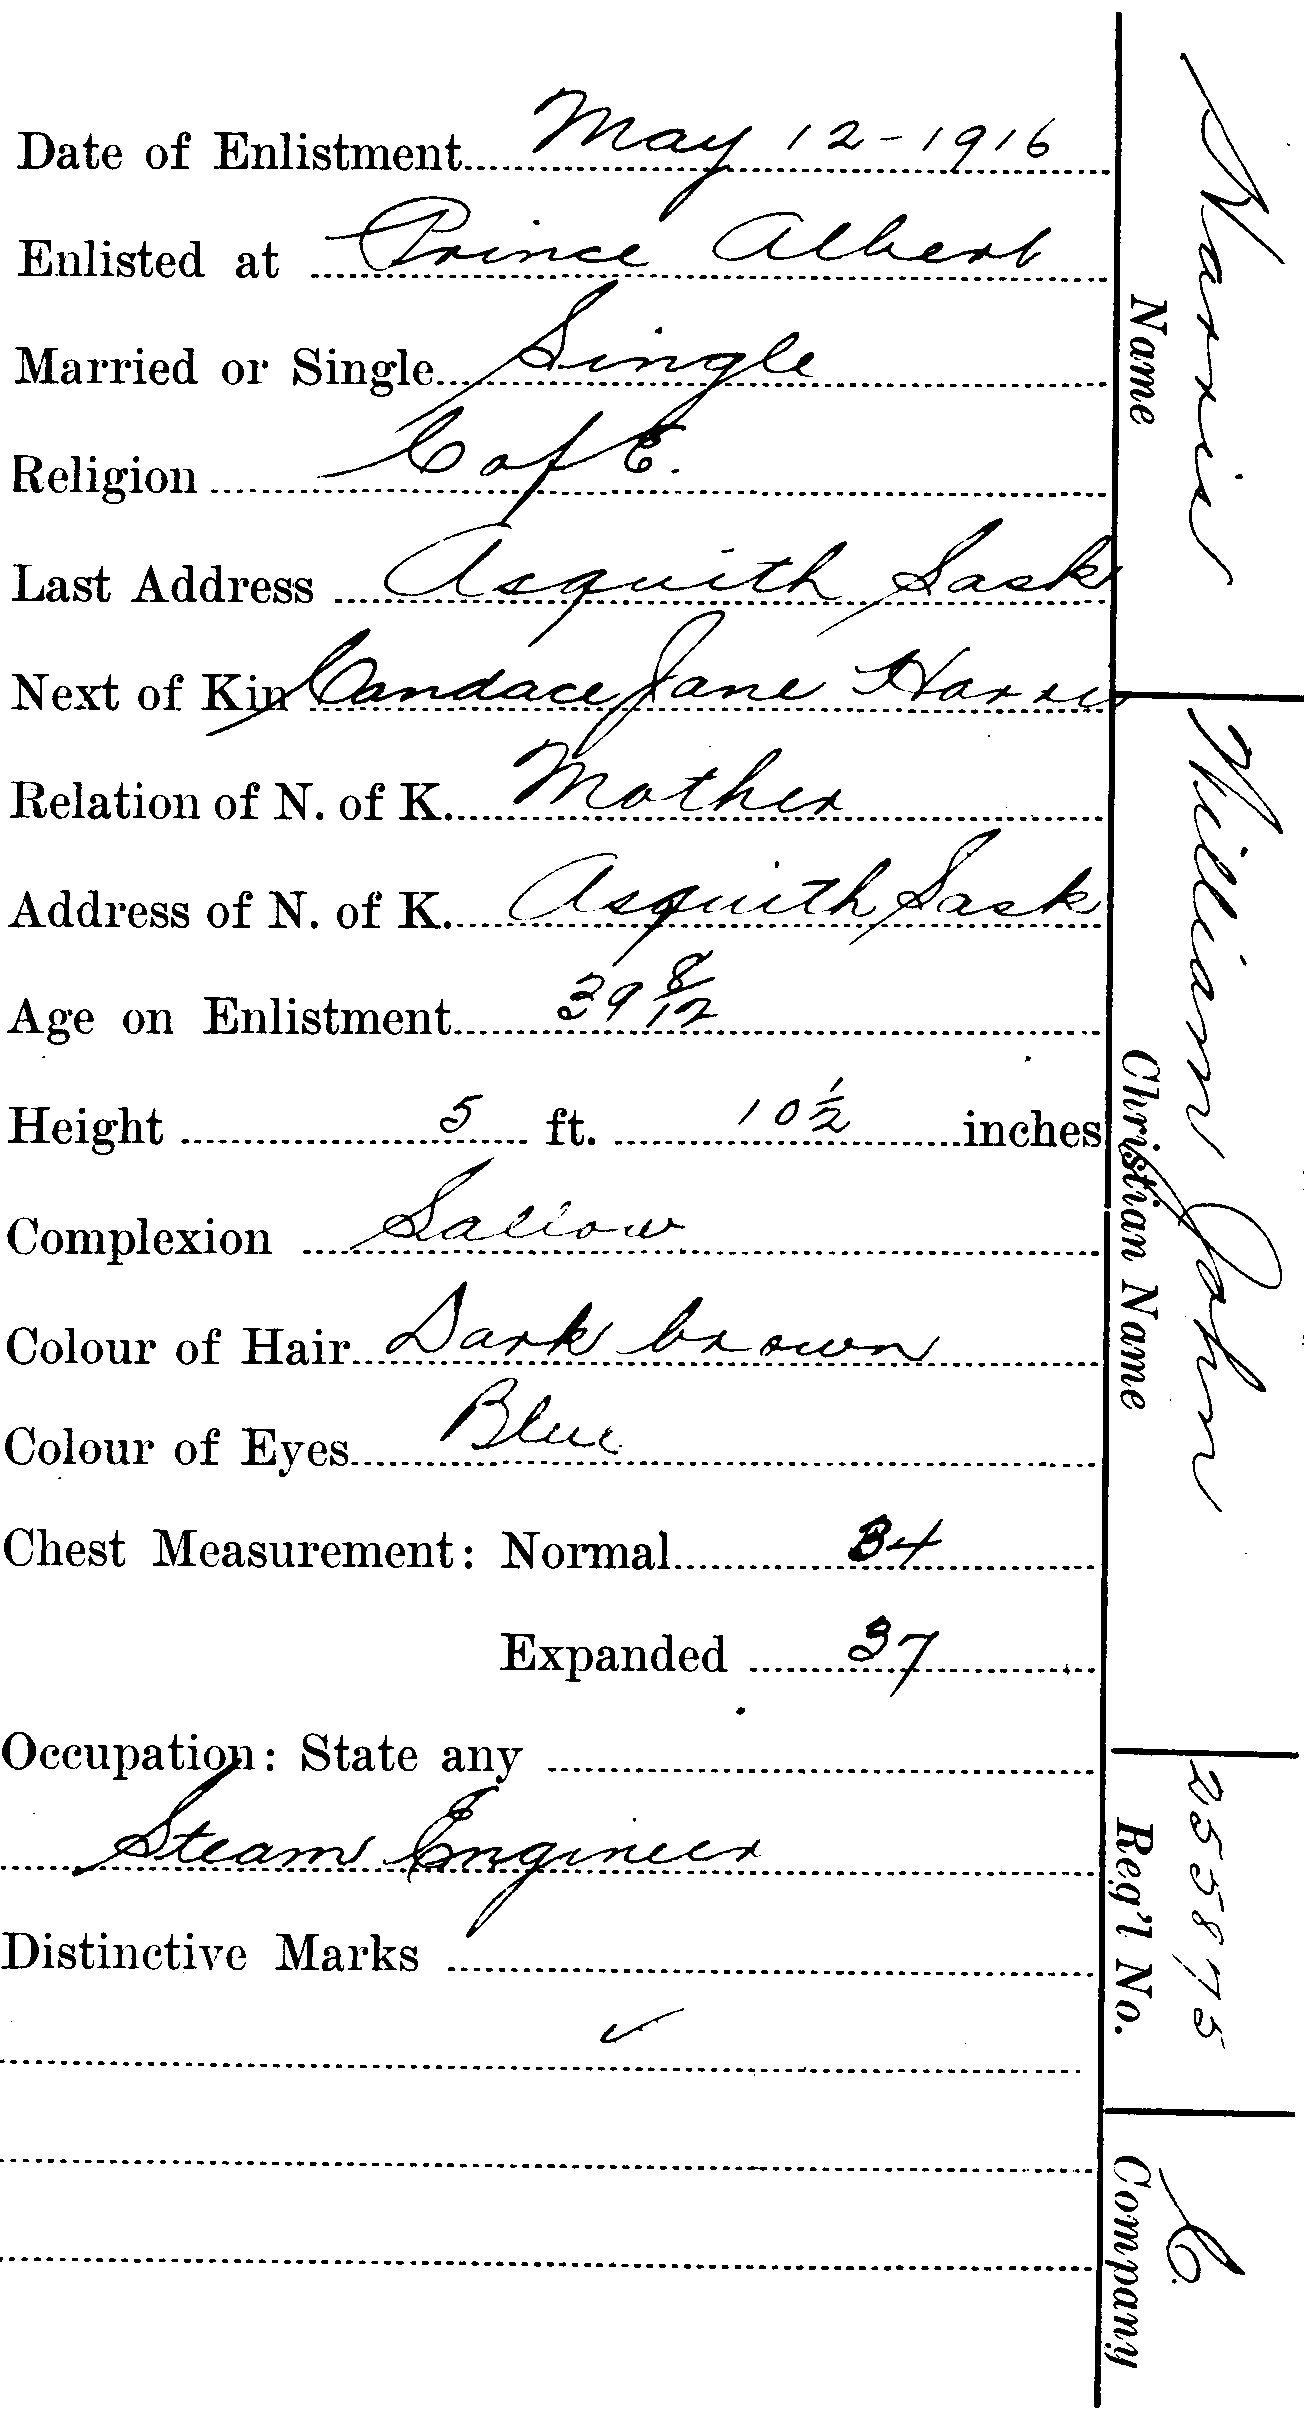 Date of Enlistment May 12-1916
Enlisted at Prince Albert
Married or Single Single
Religion C of E.
Last Address Asquith Sask
Next of Kin Candace Jane Harris
Relation of N. of K. Mother
Address of N. of K. Asquith Sask
Age on Enlistment 39 8/12
Height 5 ft. 10 1/2 inches
Complexion Sallow
Colour of Hair Dark brown
Colour of Eyes Blue
Chest Measurement: Normal 34
Expanded 37
Occupation: State any
Steam Engineer
Distinctive Marks
✓
Harris William John 255875 C.
Name Christian Name Reg'l No. Company